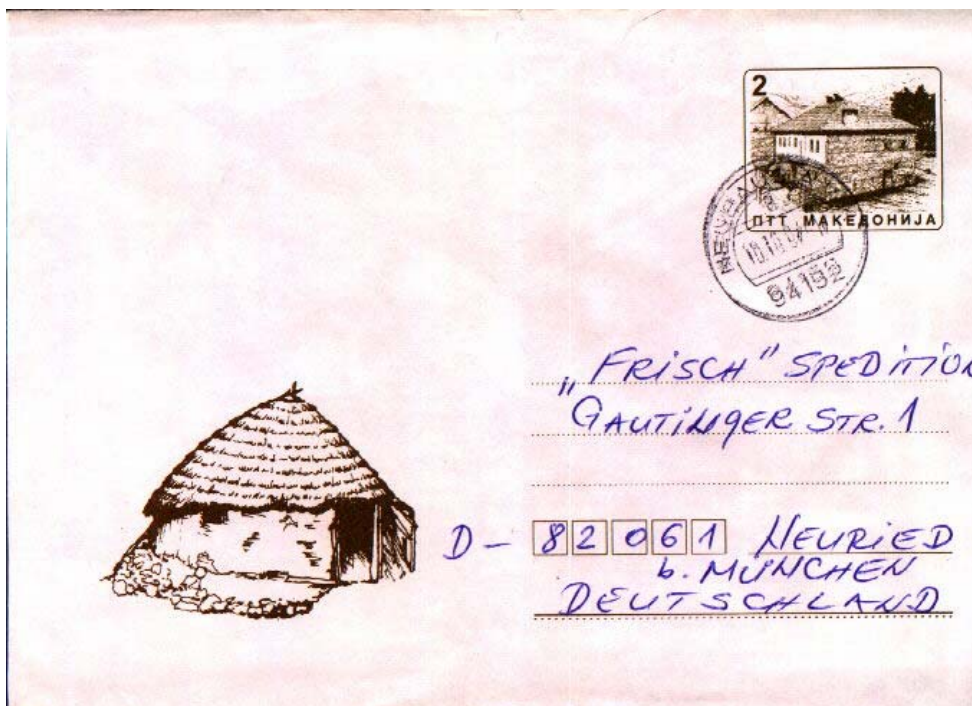 2
ПТТ МАКЕДОНИЈА
94152
„FRISCH“ SPEDITION
GAUTINGER STR. 1
D - 82061 NEURIED
b. MÜNCHEN
DEUTSCHLAND